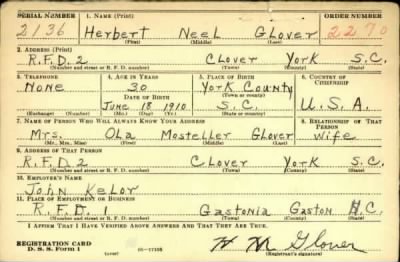 SERIAL NUMBER 1. NAME (Print) ORDER NUMBER
2136 Herbert Neel Glover 2270
(First) (Middle) (Last)
2. ADDRESS (Print)
R.F.D.2 Clover York S.C.
(Number and street or R. F. D. number) (Town) (County) (State)
3. TELEPHONE 4. AGE IN YEARS 5. PLACE OF BIRTH 6. COUNTRY OF CITIZENSHIP
None 30 York County
DATE OF BIRTH (Town or county)
June 18 1910 S.C. U.S.A.
(Exchange) (Number) (Mo.) (Day) (Yr.) (State or country)
7. NAME OF PERSON WHO WILL ALWAYS KNOW YOUR ADDRESS 8. RELATIONSHIP OF THAT PERSON
Mrs. Ola Mosteller Glover Wife
(Mr., Mrs., Miss) (First) (Middle) (Last)
9. ADDRESS OF THAT PERSON
R.F.D.2 Clover York S.C.
(Number and street or R. F. D. number) (Town) (County) (State)
10. EMPLOYER'S NAME
John Kelor
11. PLACE OF EMPLOYMENT OR BUSINESS
R.F.D. 1 Gastonia Gaston N.C.
(Number and street or R. F. D. number) (Town) (County) (State)
I AFFIRM THAT I HAVE VERIFIED ABOVE ANSWERS AND THAT THEY ARE TRUE.
REGISTRATION CARD
D. S. S. Form 1 Glover
(Registrant's signature)